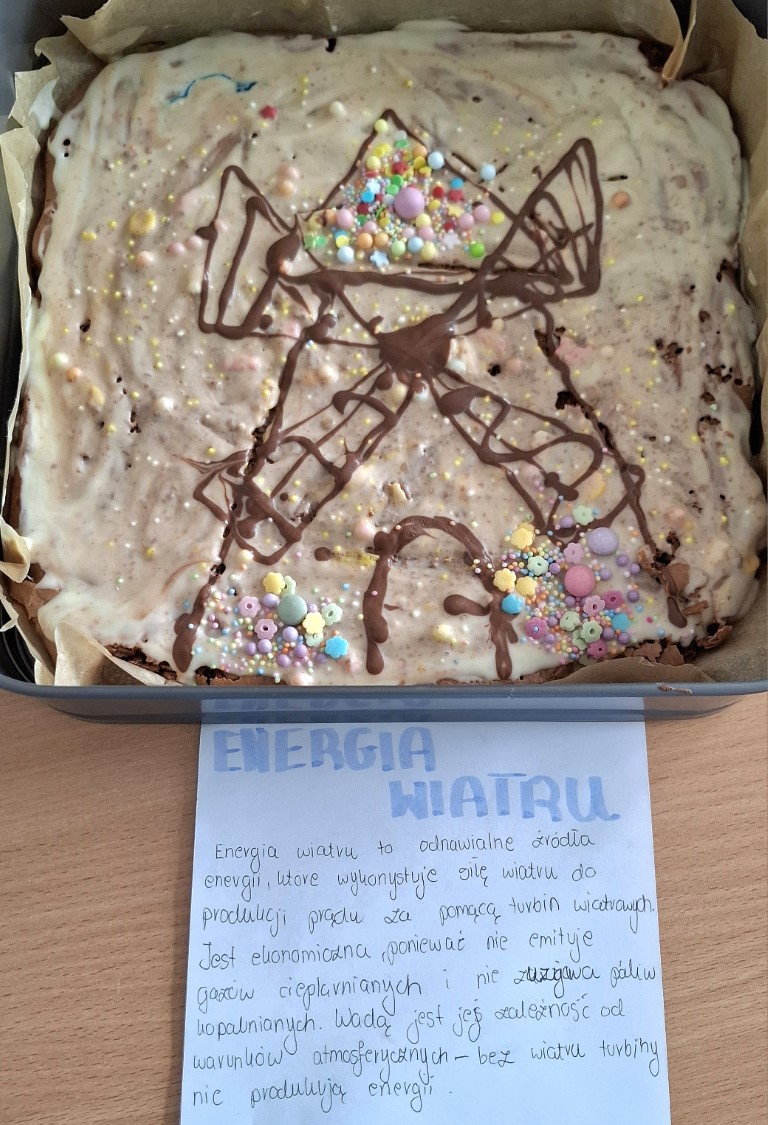 ENERGIA
WIATRU
Energia wiatru to odnawialne źródła
energii, które wykorzystuje siłę wiatru do
produkcji prądu za pomocą turbin wiatrowych.
Jest ekonomiczna, ponieważ nie emituje
gazów cieplarnianych i nie zużywa paliw
kopalnianych. Wadą jest jej zależność od
warunków atmosferycznych - bez wiatru turbiny
nie produkują energii.